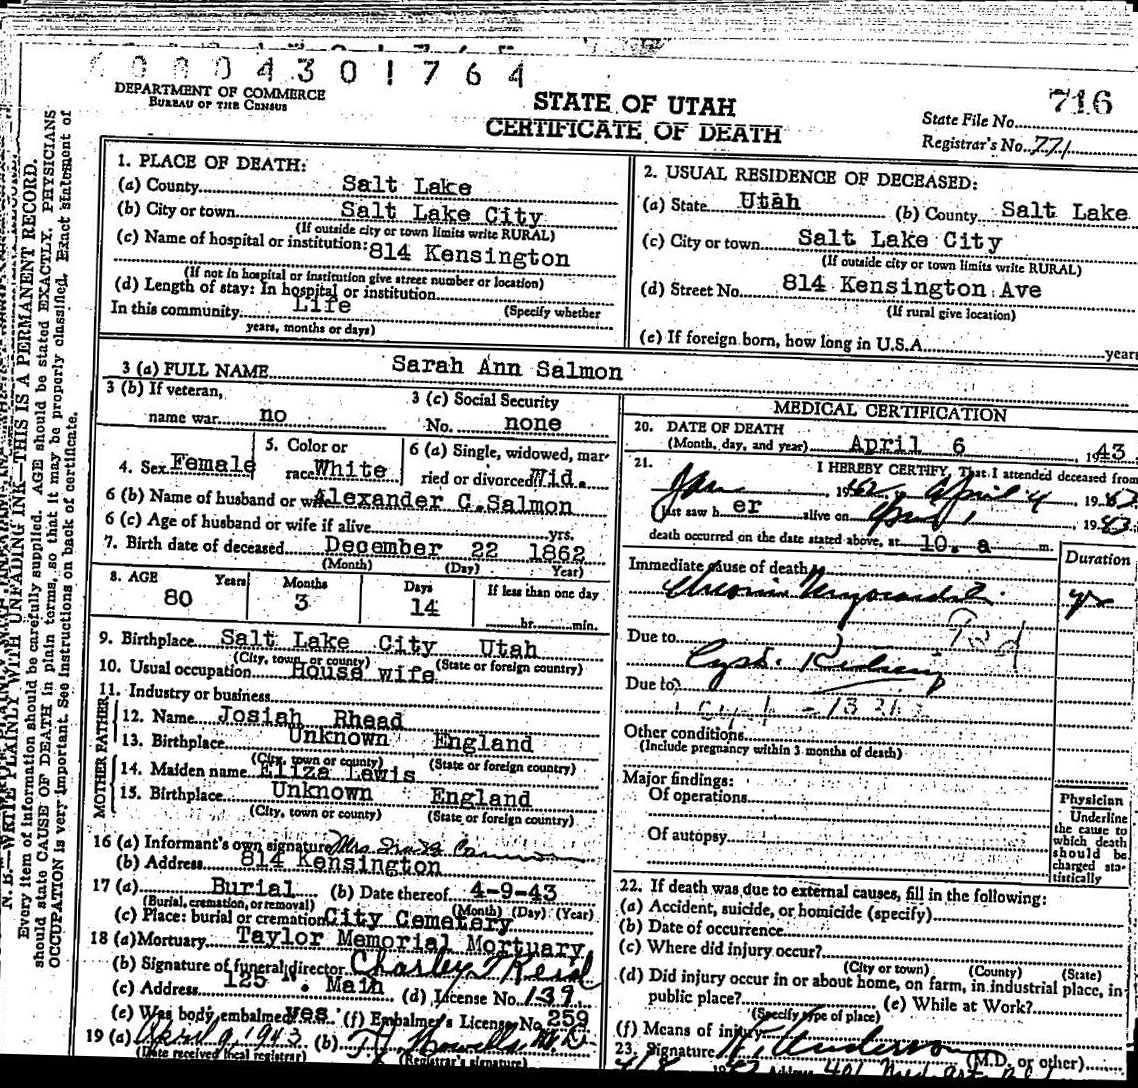 6 0 0 0 4 3 0 1 7 6 4
DEPARTMENT OF COMMERCE
BUREAU OF THE CENSUS
STATE OF UTAH
CERTIFICATE OF DEATH
716
State File No.
Registrar's No. 771
N. B.—WRITE PLAINLY WITH UNFADING INK—THIS IS A PERMANENT RECORD.
Every item of information should be carefully supplied. AGE should be stated EXACTLY. PHYSICIANS
should state CAUSE OF DEATH in plain terms, so that it may be properly classified. Exact statement of
OCCUPATION is very important. See instructions on back of certificate.
1. PLACE OF DEATH:
(a) County Salt Lake
(b) City or town Salt Lake City
(If outside city or town limits write RURAL)
(c) Name of hospital or institution: 814 Kensington
(If not in hospital or institution give street number or location)
(d) Length of stay: In hospital or institution
In this community Life (Specify whether
years, months or days)
2. USUAL RESIDENCE OF DECEASED:
(a) State Utah (b) County Salt Lake
(c) City or town Salt Lake City
(If outside city or town limits write RURAL)
(d) Street No. 814 Kensington Ave
(If rural give location)
(e) If foreign born, how long in U.S.A. years
3 (a) FULL NAME Sarah Ann Salmon
3 (b) If veteran,
name war no
3 (c) Social Security
No. none
4. Sex Female
5. Color or
race White
6 (a) Single, widowed, mar-
ried or divorced Wid.
6 (b) Name of husband or wife Alexander C. Salmon
6 (c) Age of husband or wife if alive yrs.
7. Birth date of deceased December 22 1862
(Month) (Day) Year)
8. AGE Years Months Days If less than one day
80 3 14 hr. min.
9. Birthplace Salt Lake City Utah
(City, town or county) (State or foreign country)
10. Usual occupation House wife
11. Industry or business
FATHER
12. Name Josiah Rhead
13. Birthplace Unknown England
(City, town or county) (State or foreign country)
MOTHER
14. Maiden name Eliza Lewis
15. Birthplace Unknown England
(City, town or county) (State or foreign country)
16 (a) Informant's own signature Mrs
(b) Address 814 Kensington
17 (a) Burial (b) Date thereof 4-9-43
(Burial, cremation, or removal) (Month) (Day) (Year)
(c) Place: burial or cremation City Cemetery
18 (a) Mortuary Taylor Memorial Mortuary
(b) Signature of funeral director Charley Reid
(c) Address 125 N. Main (d) License No. 139
(e) Was body embalmed yes (f) Embalmer's License No. 259
19 (a) April 9, 1943 (b) T. J. Howells M.D.
(Date received local registrar) (Registrar's signature)
MEDICAL CERTIFICATION
20. DATE OF DEATH
(Month, day, and year) April 6 1943
21. I HEREBY CERTIFY, That I attended deceased from
Jan , 19 April 4 19
(last saw h er alive on April 1 , 1943
death occurred on the date stated above, at 10. a m.
Immediate cause of death Duration
Chronic Myocarditis yrs
Due to
Cyst. Kidney
Due to
Other conditions
(Include pregnancy within 3 months of death)
Major findings:
Of operations
Of autopsy
Physician
Underline
the cause to
which death
should be
charged sta-
tistically
22. If death was due to external causes, fill in the following:
(a) Accident, suicide, or homicide (specify)
(b) Date of occurrence
(c) Where did injury occur?
(City or town) (County) (State)
(d) Did injury occur in or about home, on farm, in industrial place, in
public place? (e) While at Work?
(Specify type of place)
(f) Means of injury
23. Signature Anderson (M.D. or other)